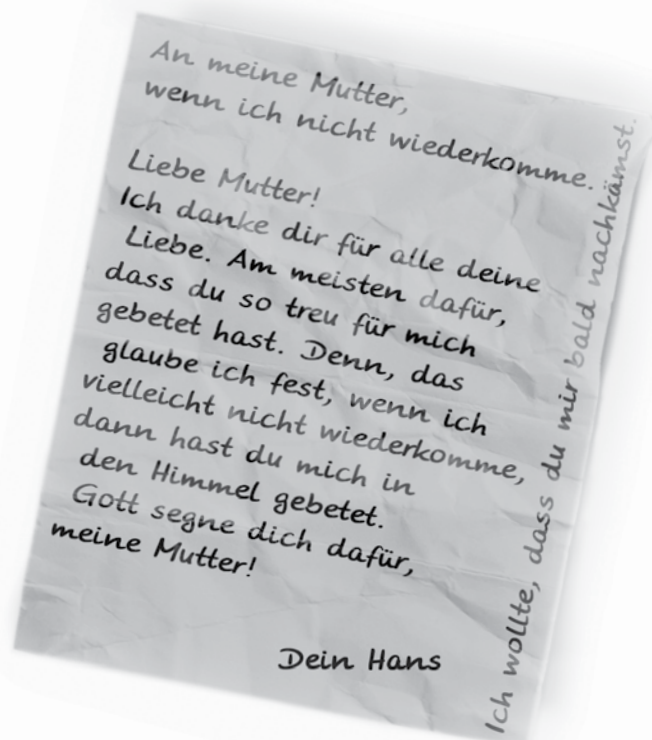 An meine Mutter,
wenn ich nicht wiederkomme.
Liebe Mutter!
Ich danke dir für alle deine
Liebe. Am meisten dafür,
dass du so treu für mich
gebetet hast. Denn, das
glaube ich fest, wenn ich
vielleicht nicht wiederkomme,
dann hast du mich in
den Himmel gebetet.
Gott segne dich dafür,
meine Mutter!
Dein Hans
Ich wollte, dass du mir bald nachkämst.